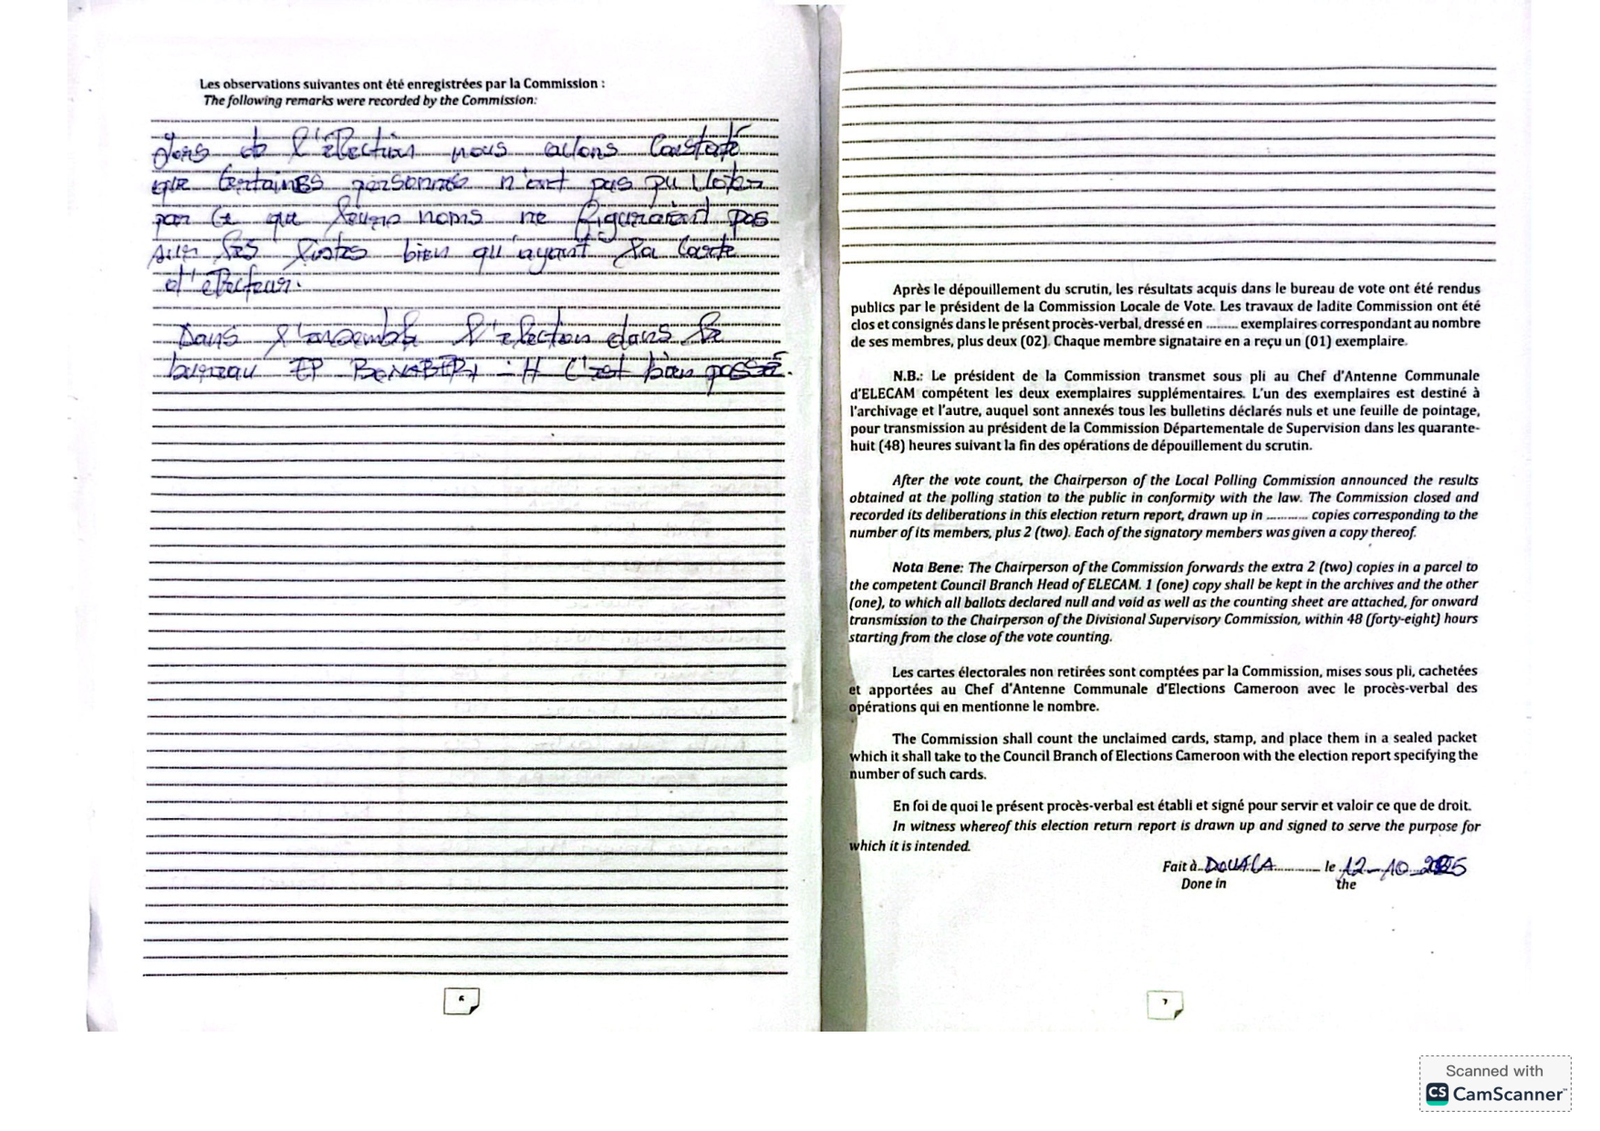 Les observations suivantes ont été enregistrées par la Commission :
The following remarks were recorded by the Commission:
lors de l'élection nous avons Constaté
que Certaines personnes n'ont pas pu Voter
par ce que leurs noms ne figuraient pas
sur les listes bien qu'ayant la Carte
d'électeur.
Dans l'ensemble l'élection dans le
bureau EP BONABERI - H C'est bien passé.
6
Après le dépouillement du scrutin, les résultats acquis dans le bureau de vote ont été rendus
publics par le président de la Commission Locale de Vote. Les travaux de ladite Commission ont été
clos et consignés dans le présent procès-verbal, dressé en ......... exemplaires correspondant au nombre
de ses membres, plus deux (02). Chaque membre signataire en a reçu un (01) exemplaire.
N.B.: Le président de la Commission transmet sous pli au Chef d'Antenne Communale
d'ELECAM compétent les deux exemplaires supplémentaires. L'un des exemplaires est destiné à
l'archivage et l'autre, auquel sont annexés tous les bulletins déclarés nuls et une feuille de pointage,
pour transmission au président de la Commission Départementale de Supervision dans les quarante-
huit (48) heures suivant la fin des opérations de dépouillement du scrutin.
After the vote count, the Chairperson of the Local Polling Commission announced the results
obtained at the polling station to the public in conformity with the law. The Commission closed and
recorded its deliberations in this election return report, drawn up in ........... copies corresponding to the
number of its members, plus 2 (two). Each of the signatory members was given a copy thereof.
Nota Bene: The Chairperson of the Commission forwards the extra 2 (two) copies in a parcel to
the competent Council Branch Head of ELECAM. 1 (one) copy shall be kept in the archives and the other
(one), to which all ballots declared null and void as well as the counting sheet are attached, for onward
transmission to the Chairperson of the Divisional Supervisory Commission, within 48 (forty-eight) hours
starting from the close of the vote counting.
Les cartes électorales non retirées sont comptées par la Commission, mises sous pli, cachetées
et apportées au Chef d'Antenne Communale d'Elections Cameroon avec le procès-verbal des
opérations qui en mentionne le nombre.
The Commission shall count the unclaimed cards, stamp, and place them in a sealed packet
which it shall take to the Council Branch of Elections Cameroon with the election report specifying the
number of such cards.
En foi de quoi le présent procès-verbal est établi et signé pour servir et valoir ce que de droit.
In witness whereof this election return report is drawn up and signed to serve the purpose for
which it is intended.
Fait à DOUALA le 12-10-2025
Done in the
7
Scanned with
CS CamScanner